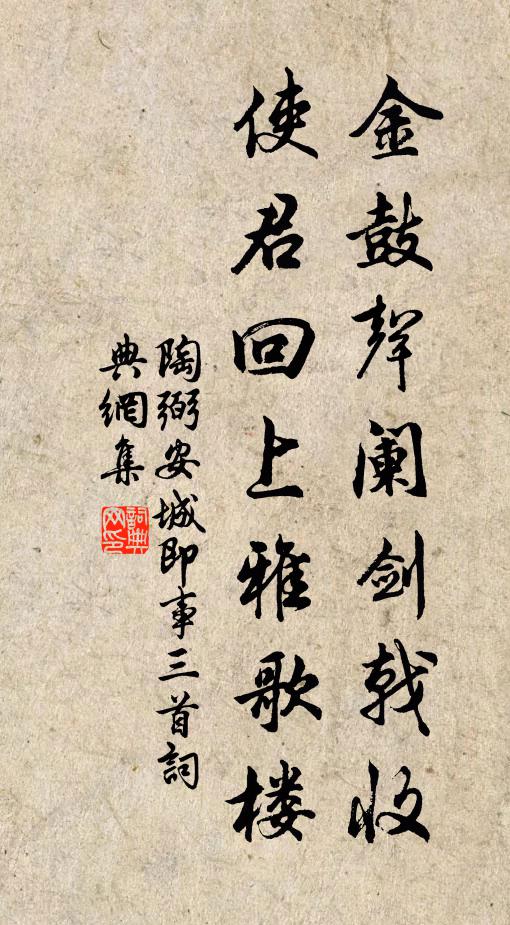 金鼓聲阑劍戟收
使君回上雅歌楼
陶弼安城即事三首詞
典網集
詞典网印